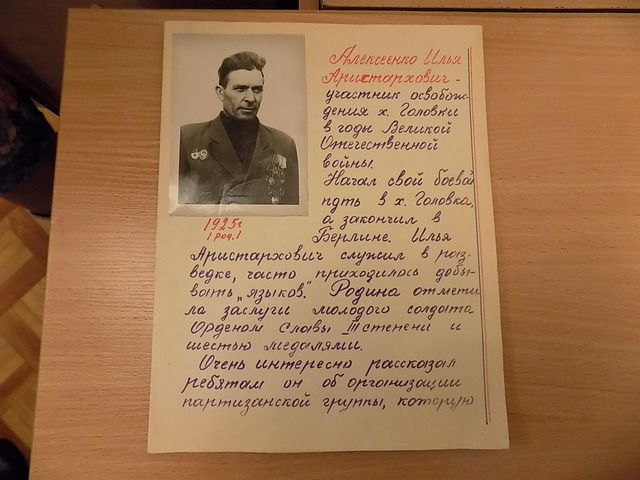 Алексеенко Илья
Аристархович -
участник освобож-
дения х. Головки
в годы Великой
Отечественной
войны.
Начал свой боевой
путь в х. Головка,
а закончил в
Берлине. Илья
1925г
/род./
Аристархович служил в раз-
ведке, часто приходилось добы-
вать „языков". Родина отмети
ла заслуги молодого солдата
Орденом Славы III степени и
шестью медалями.
Очень интересно рассказал
ребятам он об организации
партизанской группы, которую